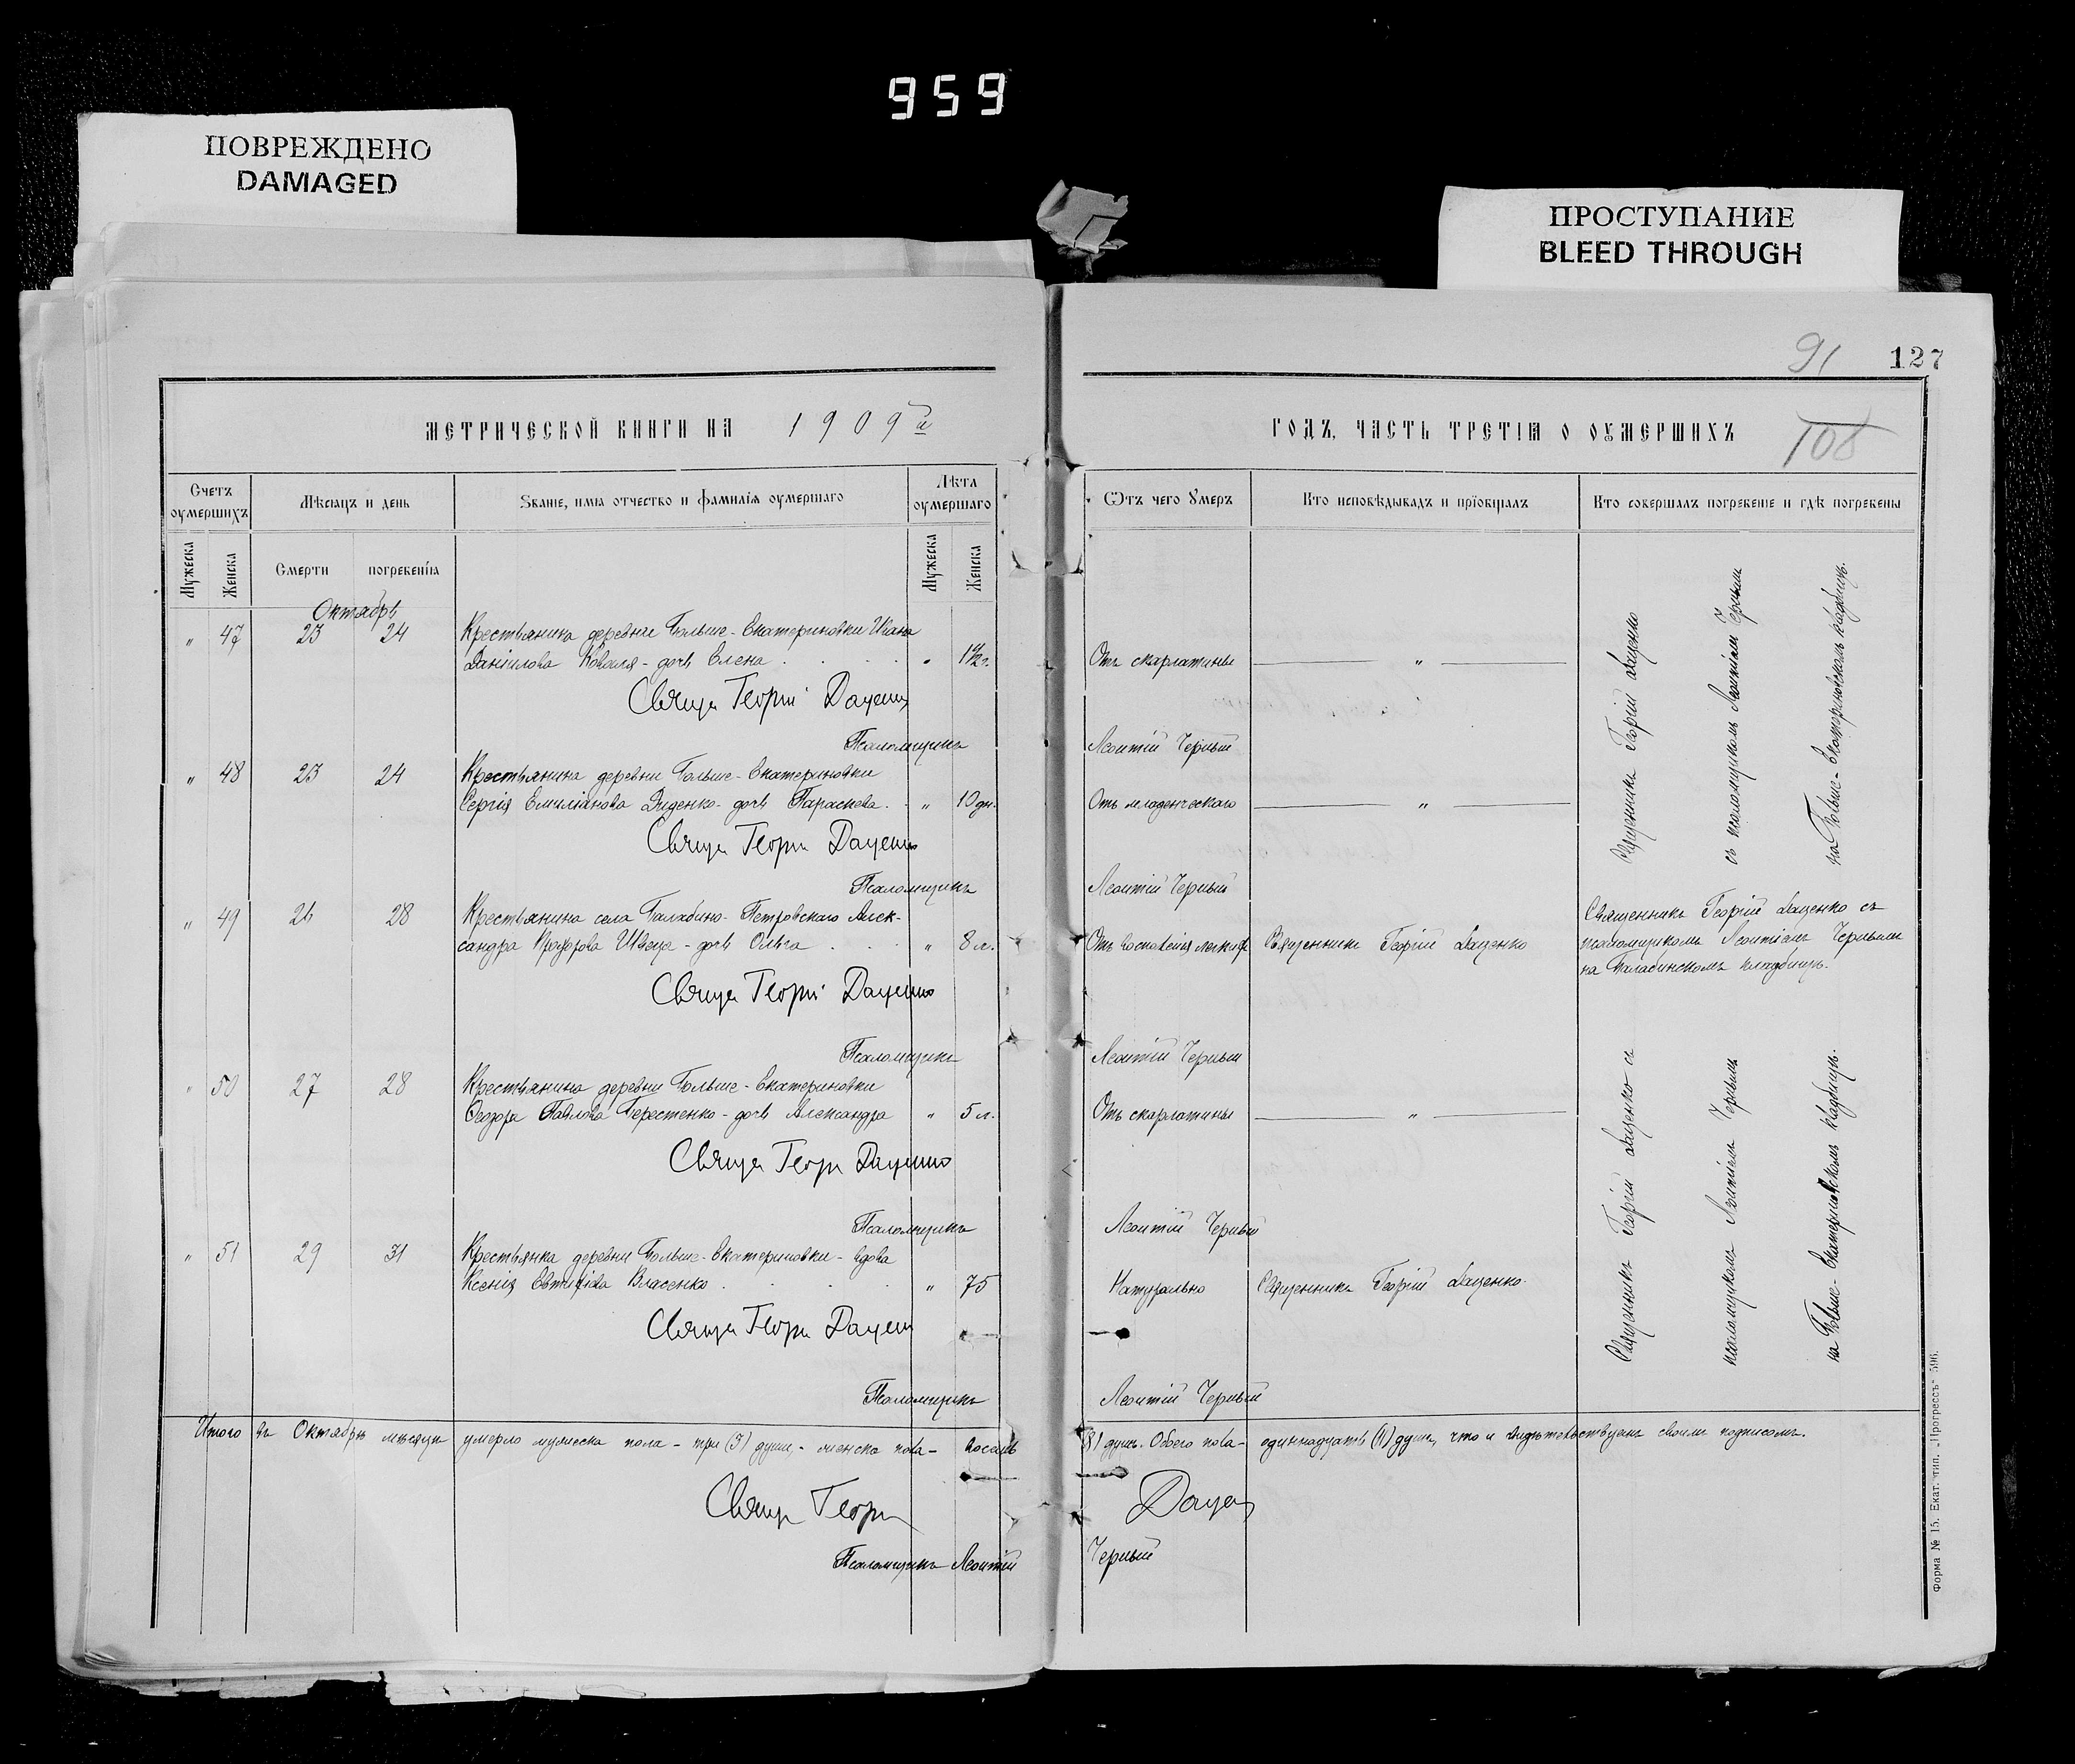 959
ПОВРЕЖДЕНО
DAMAGED
ПРОСТУПАНИЕ
BLEED THROUGH
91
127
108
МЕТРИЧЕСКОЙ КНИГИ НА 1909й
ГОДЪ, ЧАСТЬ ТРЕТІЯ О ОУМЕРШИХЪ
Счетъ оумершихъ
Мѣсяцъ и день
Званіе, имя отчество и фамилія оумершаго
Лѣта оумершаго
Отъ чего умеръ
Кто исповѣдывалъ и пріобщалъ
Кто совершалъ погребеніе и гдѣ погребены
Мужеска
Женска
Смерти
погребенія
Мужеска
Женска
Октябрь
" 47 23 24 Крестьянина деревни Больше-Екатериновки Ивана
Даніилова Коваля - дочь Елена . . . " 1½ г. Отъ скарлатины "
Свящ Георгій Даценко
Псаломщикъ Леонтій Черный
" 48 23 24 Крестьянина деревни Больше-Екатериновки
Сергія Емиліанова Диденко - дочь Параскева . " 10 дн. Отъ младенческаго "
Свящ Георгій Даценко
Священникъ Георгій Даценко
съ псаломщикомъ Леонтіемъ Чернымъ
на Больше-Екатериновскомъ кладбищѣ.
Псаломщикъ Леонтій Черный
" 49 26 28 Крестьянина села Балабино-Петровскаго Алек-
сандра Швеца - дочь Ольга . . . " 8 л. Отъ воспаленія легкихъ Священникъ Георгій Даценко
Священникъ Георгій Даценко съ
псаломщикомъ Леонтіемъ Чернымъ
на Балабинскомъ кладбищѣ.
Свящ Георгій Даценко
Псаломщикъ Леонтій Черный
" 50 27 28 Крестьянина деревни Больше-Екатериновки
Ѳеодора Павлова Берестенко - дочь Александра " 5 л. Отъ скарлатины "
Свящ Георгій Даценко
Псаломщикъ Леонтій Черный
" 51 29 31 Крестьянка деревни Больше-Екатериновки - вдова
Ксенія Власенко . . . " 75 Натурально Священникъ Георгій Даценко.
Свящ Георгій Даценко
Священникъ Георгій Даценко съ
псаломщикомъ Леонтіемъ Чернымъ
на Больше-Екатериновскомъ кладбищѣ.
Псаломщикъ Леонтій Черный
Итого въ Октябрѣ мѣсяцѣ умерло мужеска пола - три (3) души, - женска пола - восемь (8) душъ. Обоего пола - одиннадцать (11) душъ, что и свидѣтельствуемъ своимъ подписомъ.
Свящ Георгій Даценко
Псаломщикъ Леонтій Черный
Форма № 15. Екат. тип. „Прогрессъ" 596.